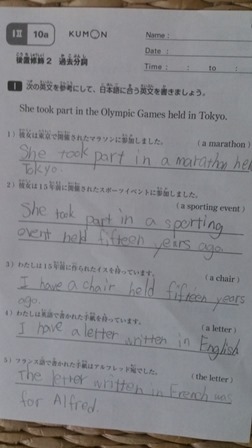 I Ⅱ 10a KUMON Name :
Date :
Time : : to :
後置修飾2 過去分詞
1 次の英文を参考にして、日本語に合う英文を書きましょう。
She took part in the Olympic Games held in Tokyo.
1) 彼女は東京で開催されたマラソンに参加しました。
(a marathon)
She took part in a marathon hel
Tokyo.
2) 彼女は15年前に開催されたスポーツイベントに参加しました。
(a sporting event)
She took part in a sporting
event held fifteen years ago
3) わたしは15年前に作られたイスを持っています。
(a chair)
I have a chair held fifteen years
ago.
4) わたしは英語で書かれた手紙を持っています。
(a letter)
I have a letter written in English
5) フランス語で書かれた手紙はアルフレッド宛でした。
(the letter)
The letter written in French was
for Alfred